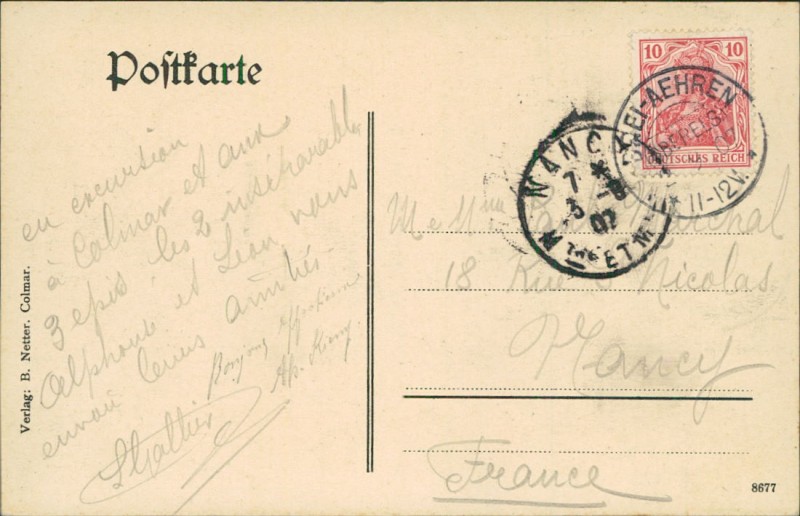 Postkarte
en excursion
à Colmar et aux
3 epis les 2 inséparables
Alphonse et Léon vous
envoi leurs amitiés
Bonjour affectueux
Verlag: B. Netter. Colmar.
10 10
DEUTSCHES REICH
DREI-AEHREN
11-12V.
NANCY
7
3 -8
07
M'THE ET M'LLE
18 Rue St Nicolas
Nancy
France
8677